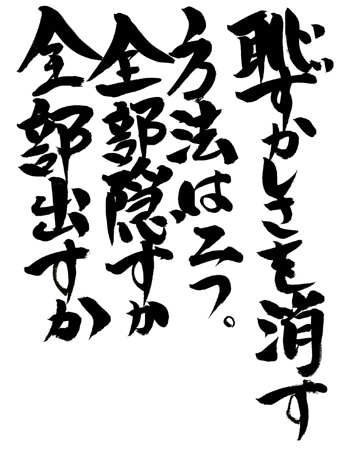 恥ずかしさを消す
方法は二つ。
全部隠すか
全部出すか